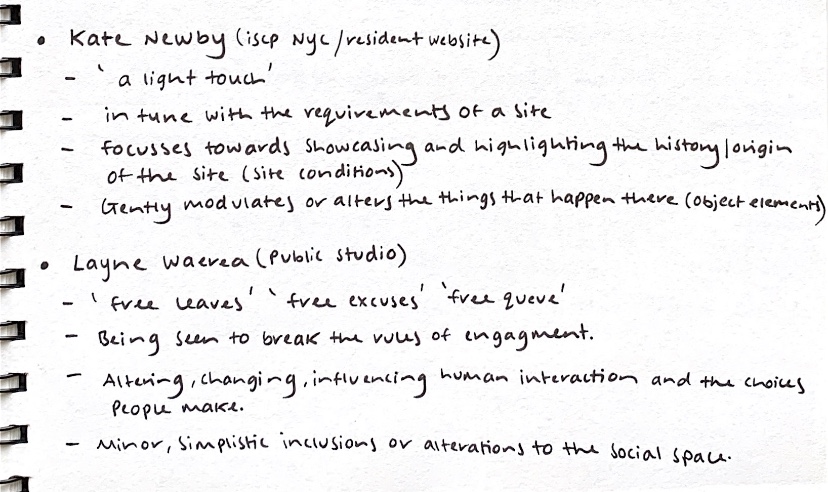 • Kate Newby (iscp NYC/resident website)
- 'a light touch'
- in tune with the requirements of a site
- focusses towards showcasing and highlighting the history/origin
of the site (site conditions)
- Gently modulates or alters the things that happen there (object elements)
• Layne Waerea (Public studio)
- 'free leaves' 'free excuses' 'free queue'
- Being seen to break the rules of engagment.
- Altering, changing, influencing human interaction and the choices
people make.
- Minor, simplistic inclusions or alterations to the social space.